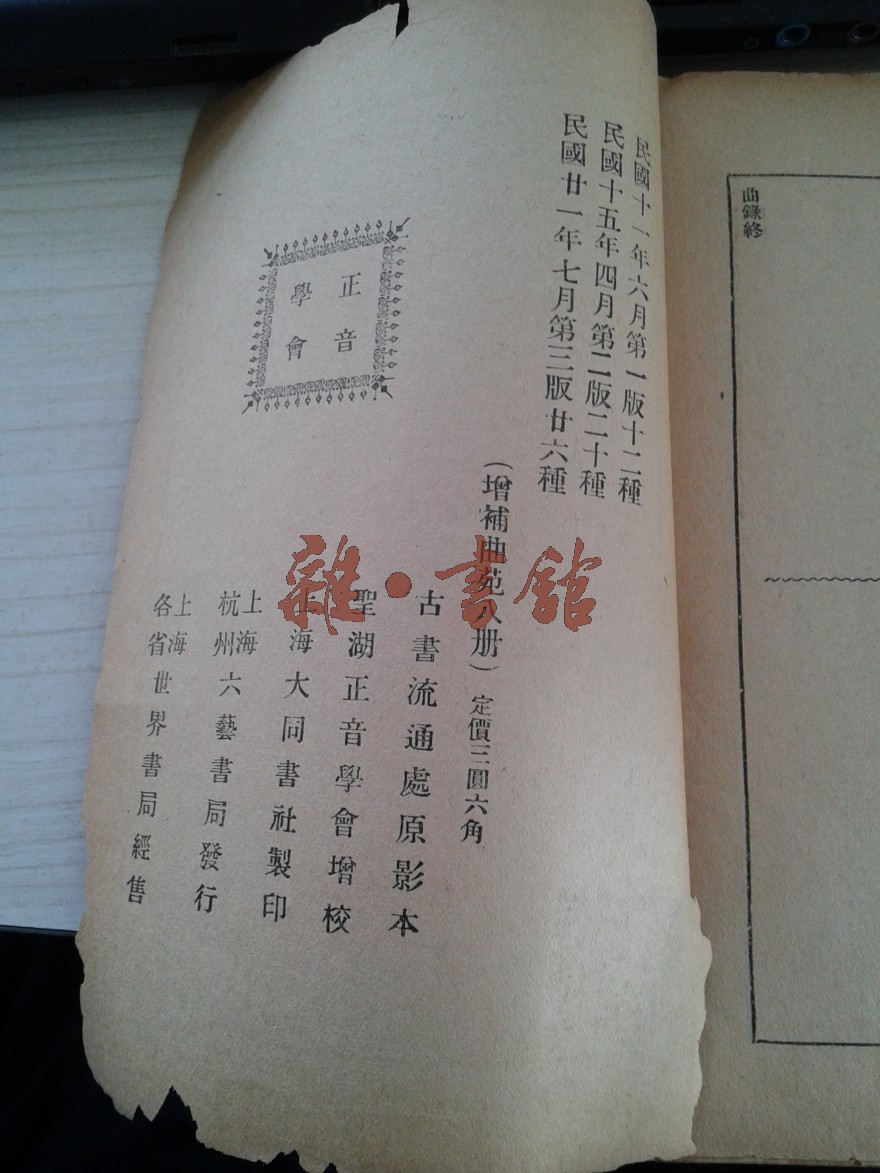 曲錄終
民國十一年六月第一版十二種
民國十五年四月第二版二十種
民國廿一年七月第三版廿六種
(增補曲苑八册) 定價三圓六角
古書流通處原影本
聖湖正音學會增校
上海大同書社製印
上海
杭州
六藝書局發行
上海
各省
世界書局經售
正音
學會
雜·書館